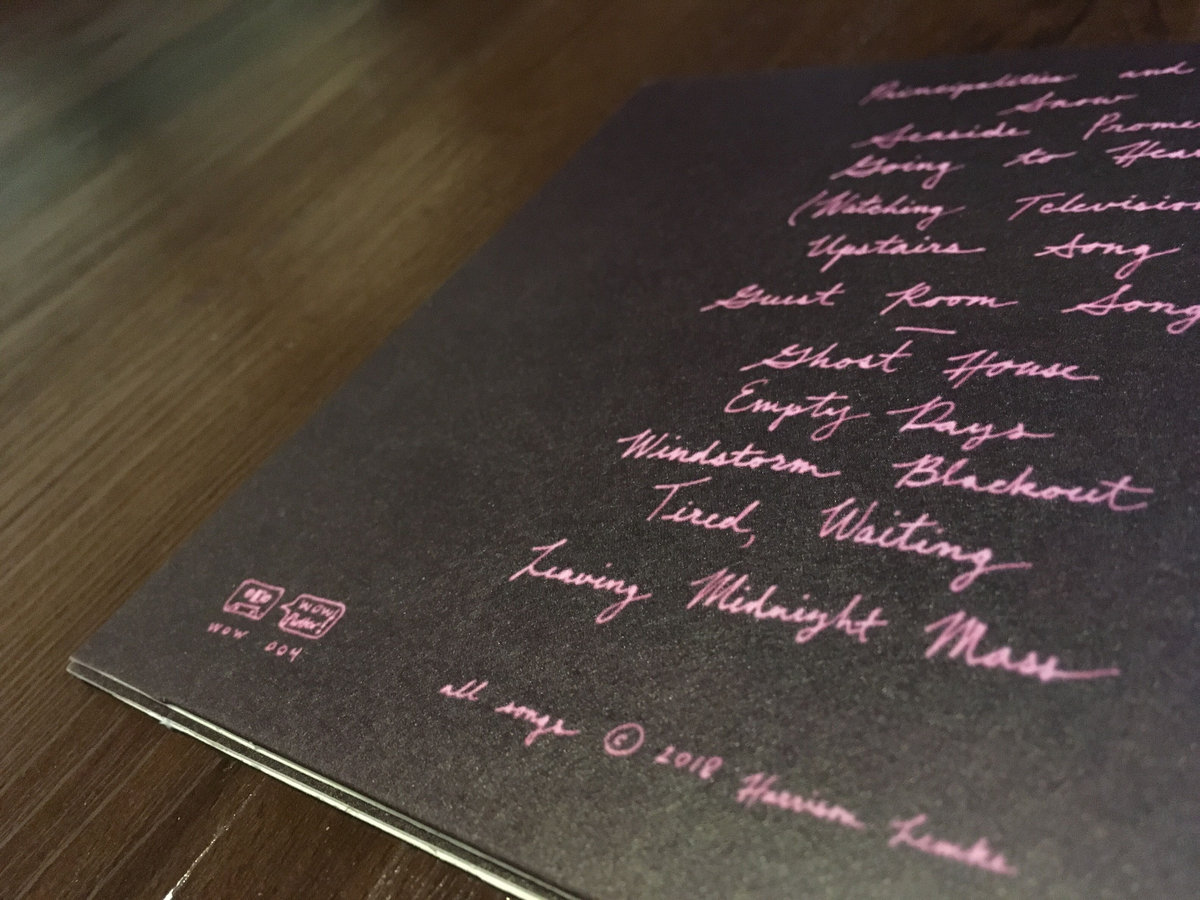 Principalities and
Snow
Seaside Prome
Going to Hea
(Watching Television
Upstairs Song
Guest Room Song
Ghost House
Empty Days
Windstorm Blackout
Tired, Waiting
Leaving Midnight Mass
WOW
WOW 004
all songs © 2018 Harrison Lemke